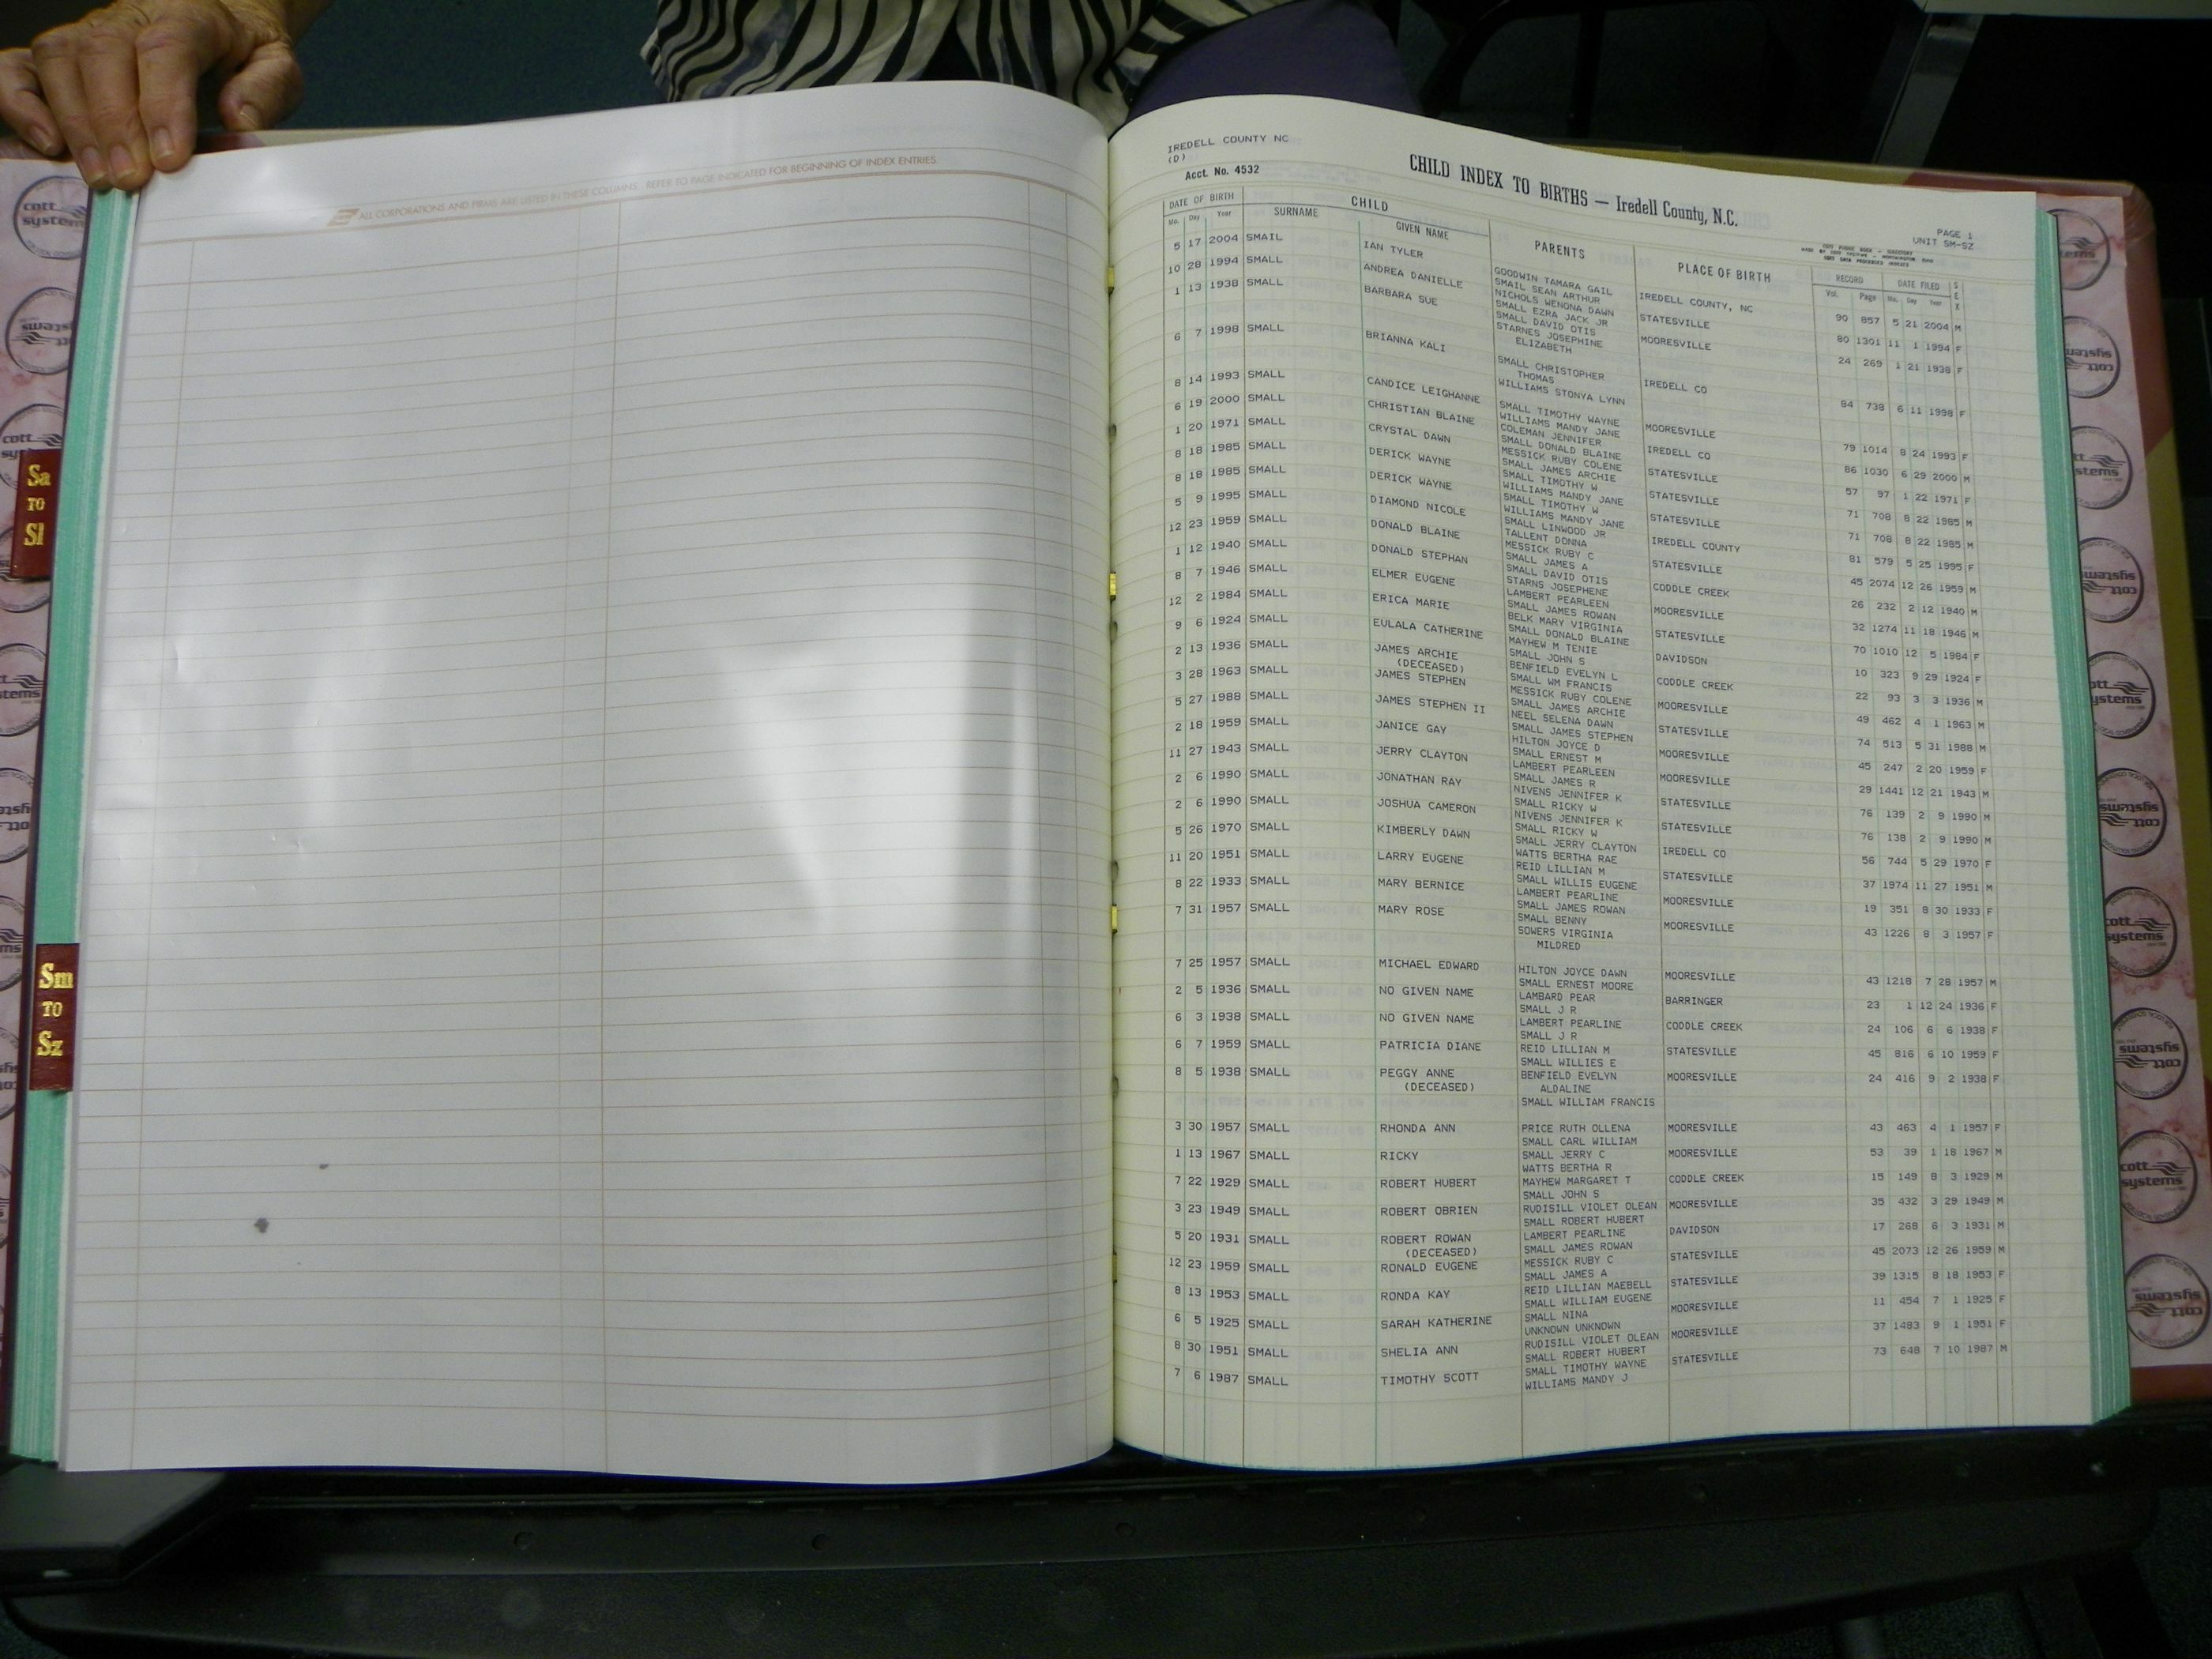 cott systems
Sa
TO
Sl
Sm
TO
Sz
ALL CORPORATIONS AND FIRMS ARE LISTED IN THESE COLUMNS. REFER TO PAGE INDICATED FOR BEGINNING OF INDEX ENTRIES.
IREDELL COUNTY NC
(D)
Acct. No. 4532
CHILD INDEX TO BIRTHS — Iredell County, N.C.
PAGE 1
UNIT SM-SZ
DATE OF BIRTH CHILD PARENTS PLACE OF BIRTH RECORD DATE FILED SEX
Mo. Day Year SURNAME GIVEN NAME Vol. Page Mo. Day Year
5 17 2004 SMAIL IAN TYLER GOODWIN TAMARA GAIL IREDELL COUNTY, NC 90 857 5 21 2004 M
SMAIL SEAN ARTHUR
10 28 1994 SMALL ANDREA DANIELLE NICHOLS WENONA DAWN STATESVILLE 80 1301 11 1 1994 F
SMALL EZRA JACK JR
1 13 1938 SMALL BARBARA SUE SMALL DAVID OTIS MOORESVILLE 24 269 1 21 1938 F
STARNES JOSEPHINE
ELIZABETH
6 7 1998 SMALL BRIANNA KALI SMALL CHRISTOPHER IREDELL CO 84 738 6 11 1998 F
THOMAS
WILLIAMS STONYA LYNN
8 14 1993 SMALL CANDICE LEIGHANNE SMALL TIMOTHY WAYNE MOORESVILLE 79 1014 8 24 1993 F
WILLIAMS MANDY JANE
6 19 2000 SMALL CHRISTIAN BLAINE COLEMAN JENNIFER IREDELL CO 86 1030 6 29 2000 M
SMALL DONALD BLAINE
1 20 1971 SMALL CRYSTAL DAWN MESSICK RUBY COLENE STATESVILLE 57 97 1 22 1971 F
SMALL JAMES ARCHIE
8 18 1985 SMALL DERICK WAYNE SMALL TIMOTHY W STATESVILLE 71 708 8 22 1985 M
WILLIAMS MANDY JANE
8 18 1985 SMALL DERICK WAYNE SMALL TIMOTHY W STATESVILLE 71 708 8 22 1985 M
WILLIAMS MANDY JANE
5 9 1995 SMALL DIAMOND NICOLE SMALL LINWOOD JR IREDELL COUNTY 81 579 5 25 1995 F
TALLENT DONNA
12 23 1959 SMALL DONALD BLAINE MESSICK RUBY C STATESVILLE 45 2074 12 26 1959 M
SMALL JAMES A
1 12 1940 SMALL DONALD STEPHAN SMALL DAVID OTIS CODDLE CREEK 26 232 2 12 1940 M
STARNS JOSEPHENE
8 7 1946 SMALL ELMER EUGENE LAMBERT PEARLEEN MOORESVILLE 32 1274 11 18 1946 M
SMALL JAMES ROWAN
12 2 1984 SMALL ERICA MARIE BELK MARY VIRGINIA STATESVILLE 70 1010 12 5 1984 F
SMALL DONALD BLAINE
9 6 1924 SMALL EULALA CATHERINE MAYHEW M TENIE DAVIDSON 10 323 9 29 1924 F
SMALL JOHN S
2 13 1936 SMALL JAMES ARCHIE BENFIELD EVELYN L CODDLE CREEK 22 93 3 3 1936 M
(DECEASED) SMALL WM FRANCIS
3 28 1963 SMALL JAMES STEPHEN MESSICK RUBY COLENE MOORESVILLE 49 462 4 1 1963 M
SMALL JAMES ARCHIE
5 27 1988 SMALL JAMES STEPHEN II NEEL SELENA DAWN STATESVILLE 74 513 5 31 1988 M
SMALL JAMES STEPHEN
2 18 1959 SMALL JANICE GAY HILTON JOYCE D MOORESVILLE 45 247 2 20 1959 F
SMALL ERNEST M
11 27 1943 SMALL JERRY CLAYTON LAMBERT PEARLEEN MOORESVILLE 29 1441 12 21 1943 M
SMALL JAMES R
2 6 1990 SMALL JONATHAN RAY NIVENS JENNIFER K STATESVILLE 76 139 2 9 1990 M
SMALL RICKY W
2 6 1990 SMALL JOSHUA CAMERON NIVENS JENNIFER K STATESVILLE 76 138 2 9 1990 M
SMALL RICKY W
5 26 1970 SMALL KIMBERLY DAWN SMALL JERRY CLAYTON IREDELL CO 56 744 5 29 1970 F
WATTS BERTHA RAE
11 20 1951 SMALL LARRY EUGENE REID LILLIAN M STATESVILLE 37 1974 11 27 1951 M
SMALL WILLIS EUGENE
8 22 1933 SMALL MARY BERNICE LAMBERT PEARLINE MOORESVILLE 19 351 8 30 1933 F
SMALL JAMES ROWAN
7 31 1957 SMALL MARY ROSE SMALL BENNY MOORESVILLE 43 1226 8 3 1957 F
SOWERS VIRGINIA
MILDRED
7 25 1957 SMALL MICHAEL EDWARD HILTON JOYCE DAWN MOORESVILLE 43 1218 7 28 1957 M
SMALL ERNEST MOORE
2 5 1936 SMALL NO GIVEN NAME LAMBARD PEAR BARRINGER 23 1 12 24 1936 F
SMALL J R
6 3 1938 SMALL NO GIVEN NAME LAMBERT PEARLINE CODDLE CREEK 24 106 6 6 1938 F
SMALL J R
6 7 1959 SMALL PATRICIA DIANE REID LILLIAN M STATESVILLE 45 816 6 10 1959 F
SMALL WILLIES E
8 5 1938 SMALL PEGGY ANNE BENFIELD EVELYN MOORESVILLE 24 416 9 2 1938 F
(DECEASED) ALDALINE
SMALL WILLIAM FRANCIS
3 30 1957 SMALL RHONDA ANN PRICE RUTH OLLENA MOORESVILLE 43 463 4 1 1957 F
SMALL CARL WILLIAM
1 13 1967 SMALL RICKY SMALL JERRY C MOORESVILLE 53 39 1 18 1967 M
WATTS BERTHA R
7 22 1929 SMALL ROBERT HUBERT MAYHEW MARGARET T CODDLE CREEK 15 149 8 3 1929 M
SMALL JOHN S
3 23 1949 SMALL ROBERT OBRIEN RUDISILL VIOLET OLEAN MOORESVILLE 35 432 3 29 1949 M
SMALL ROBERT HUBERT
5 20 1931 SMALL ROBERT ROWAN LAMBERT PEARLINE DAVIDSON 17 268 6 3 1931 M
(DECEASED) SMALL JAMES ROWAN
12 23 1959 SMALL RONALD EUGENE MESSICK RUBY C STATESVILLE 45 2073 12 26 1959 M
SMALL JAMES A
8 13 1953 SMALL RONDA KAY REID LILLIAN MAEBELL STATESVILLE 39 1315 8 18 1953 F
SMALL WILLIAM EUGENE
6 5 1925 SMALL SARAH KATHERINE SMALL NINA MOORESVILLE 11 454 7 1 1925 F
UNKNOWN UNKNOWN
8 30 1951 SMALL SHELIA ANN RUDISILL VIOLET OLEAN MOORESVILLE 37 1483 9 1 1951 F
SMALL ROBERT HUBERT
7 6 1987 SMALL TIMOTHY SCOTT SMALL TIMOTHY WAYNE STATESVILLE 73 648 7 10 1987 M
WILLIAMS MANDY J